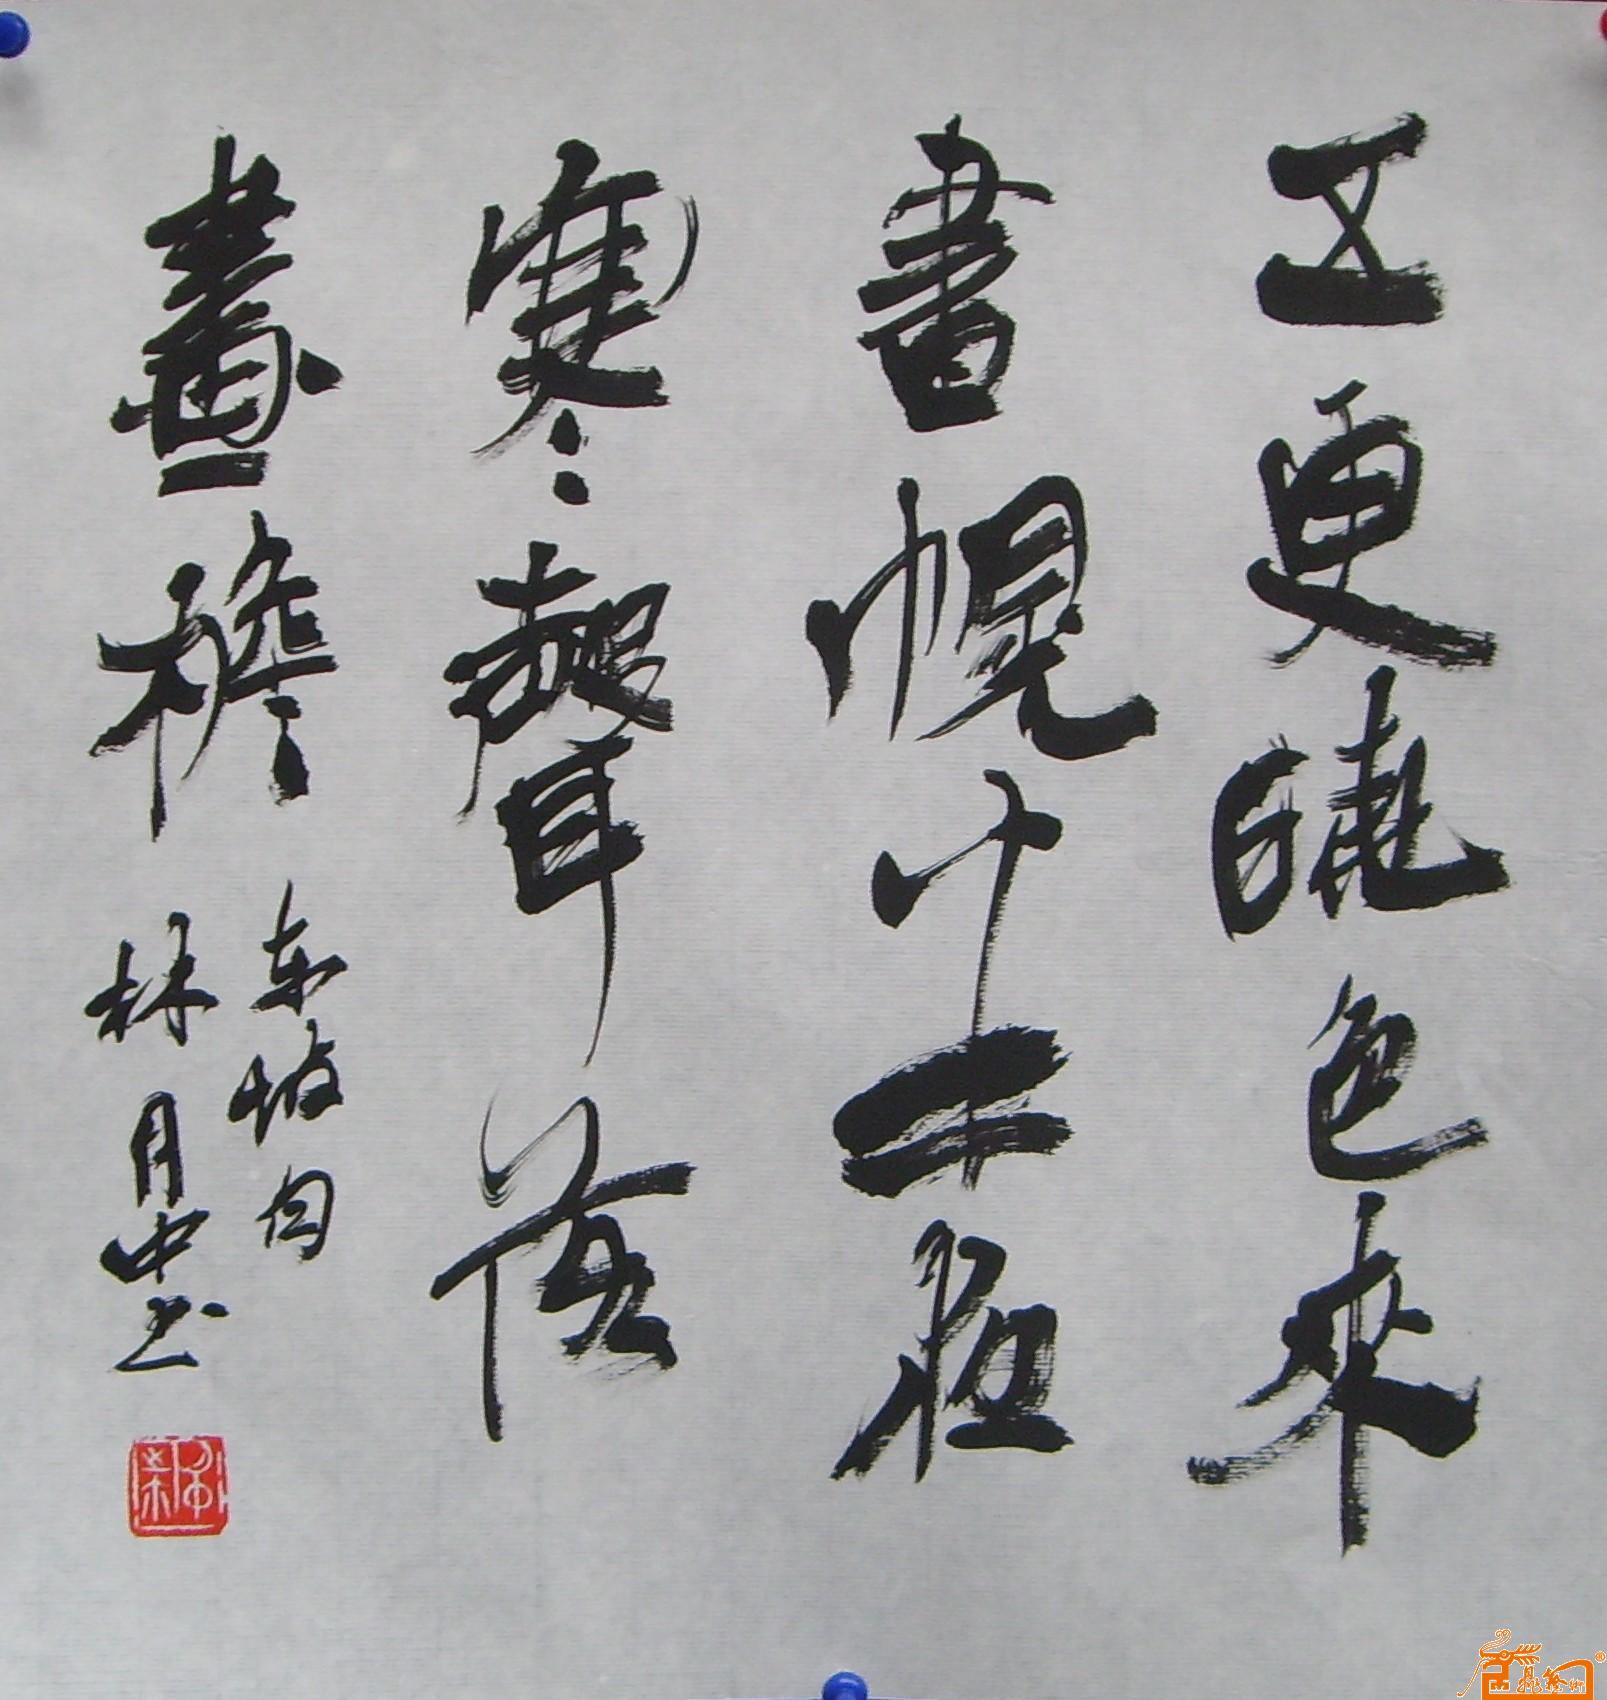 五更曉色來
書幌半夜
寒聲落
畫檐
东坡句
林月中书